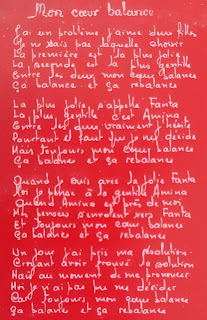 Mon cœur balance
J'ai un problème j'aime deux filles
Je ne sais pas laquelle choisir
La première est la plus jolie
La seconde est la plus gentille
Entre les deux mon cœur balance
Ça balance et ça rebalance
La plus jolie s'appelle Fanta
La plus gentille c'est Amina
Entre les deux vraiment j'hésite
Pourtant il faut que je me décide
Mais toujours mon cœur balance
Ça balance et ça rebalance
Quand je suis avec la jolie Fanta
Moi je pense à la gentille Amina
Quand Amina est près de moi
Mes pensées s'envolent vers Fanta
Et toujours mon cœur balance
Ça balance et ça rebalance
Un jour j'ai pris ma résolution
Croyant avoir trouvé la solution
Mais au moment de me prononcer
Moi je n'ai pas pu me décider
Car toujours mon cœur balance
Ça balance et ça rebalance